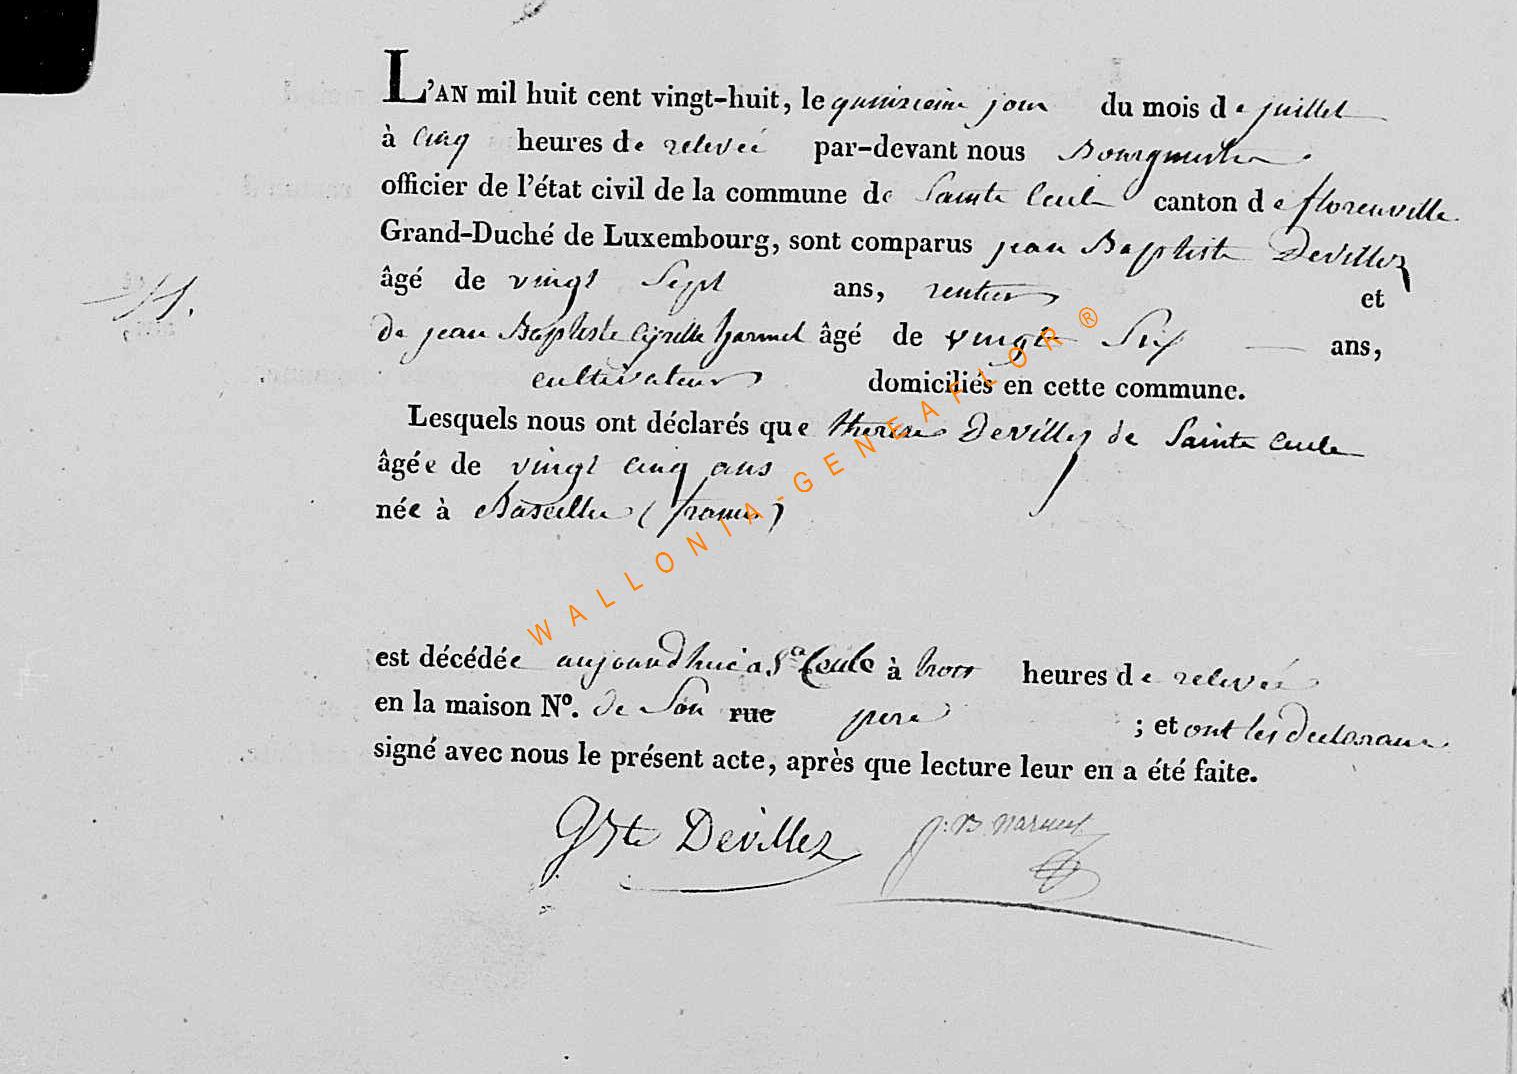 L'AN mil huit cent vingt-huit, le quinzieme jour du mois de juillet
à cinq heures de relevée par-devant nous Bourgmestre
officier de l'état civil de la commune de Sainte Cecile canton de florenville
Grand-Duché de Luxembourg, sont comparus jean Baptiste Devillez
âgé de vingt Sept ans, rentier et
de jean Baptiste Cyrille harmel âgé de vingt Six ans,
cultivateur domiciliés en cette commune.
Lesquels nous ont déclarés que therese Devillez de Sainte Cecile
âgée de vingt cinq ans
née à Bazeilles (france)
est décédée aujourd'hui a Ste Cecile à trois heures de relevée
en la maison N°. de Son rue pere ; et ont les declarans
signé avec nous le présent acte, après que lecture leur en a été faite.
Devillez J: B harmel
WALLONIA-GENEAFLOR ®